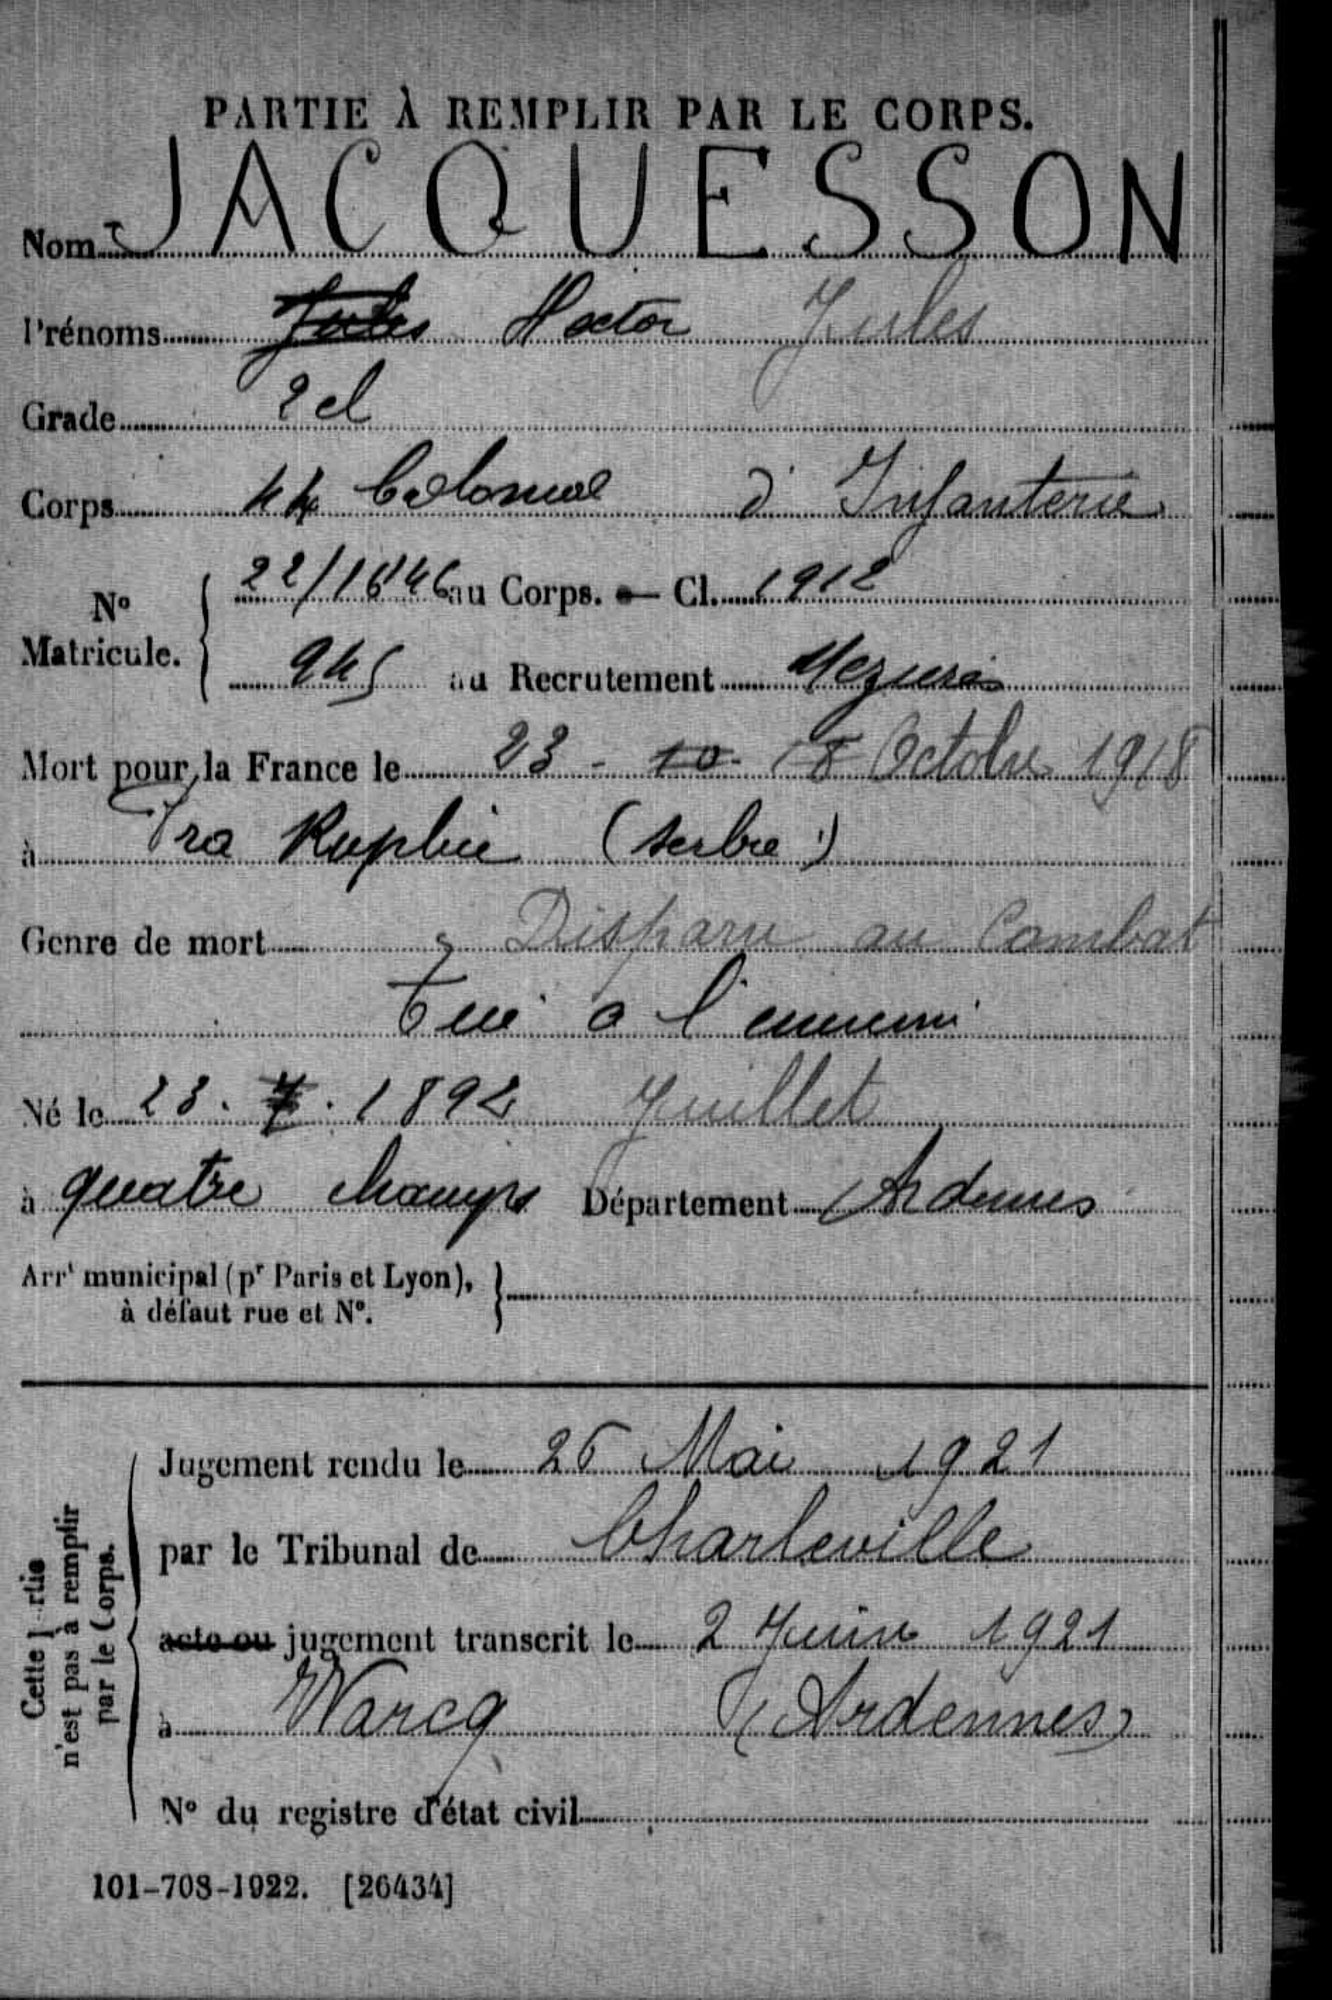 PARTIE À REMPLIR PAR LE CORPS.
Nom JACQUESSON
Prénoms Jules Hector Jules
Grade 2 cl
Corps 44 Colonial d'Infanterie
N° Matricule. 22/16146 au Corps. — Cl. 1912
945 au Recrutement Mezieres
Mort pour la France le 23 - 10 - 18 Octobre 1918
à (Serbie)
Genre de mort Disparu au Combat
Tué a l'ennemi
Né le 23 . 7 . 1892 Juillet
à quatre champs Département Ardennes
Arrt municipal (pr Paris et Lyon),
à défaut rue et N°.
Cette partie
n'est pas à remplir
par le Corps.
Jugement rendu le 26 Mai 1921
par le Tribunal de Charleville
acte ou jugement transcrit le 2 Juin 1921
à Warcq (Ardennes)
N° du registre d'état civil
101-708-1922. [26434]